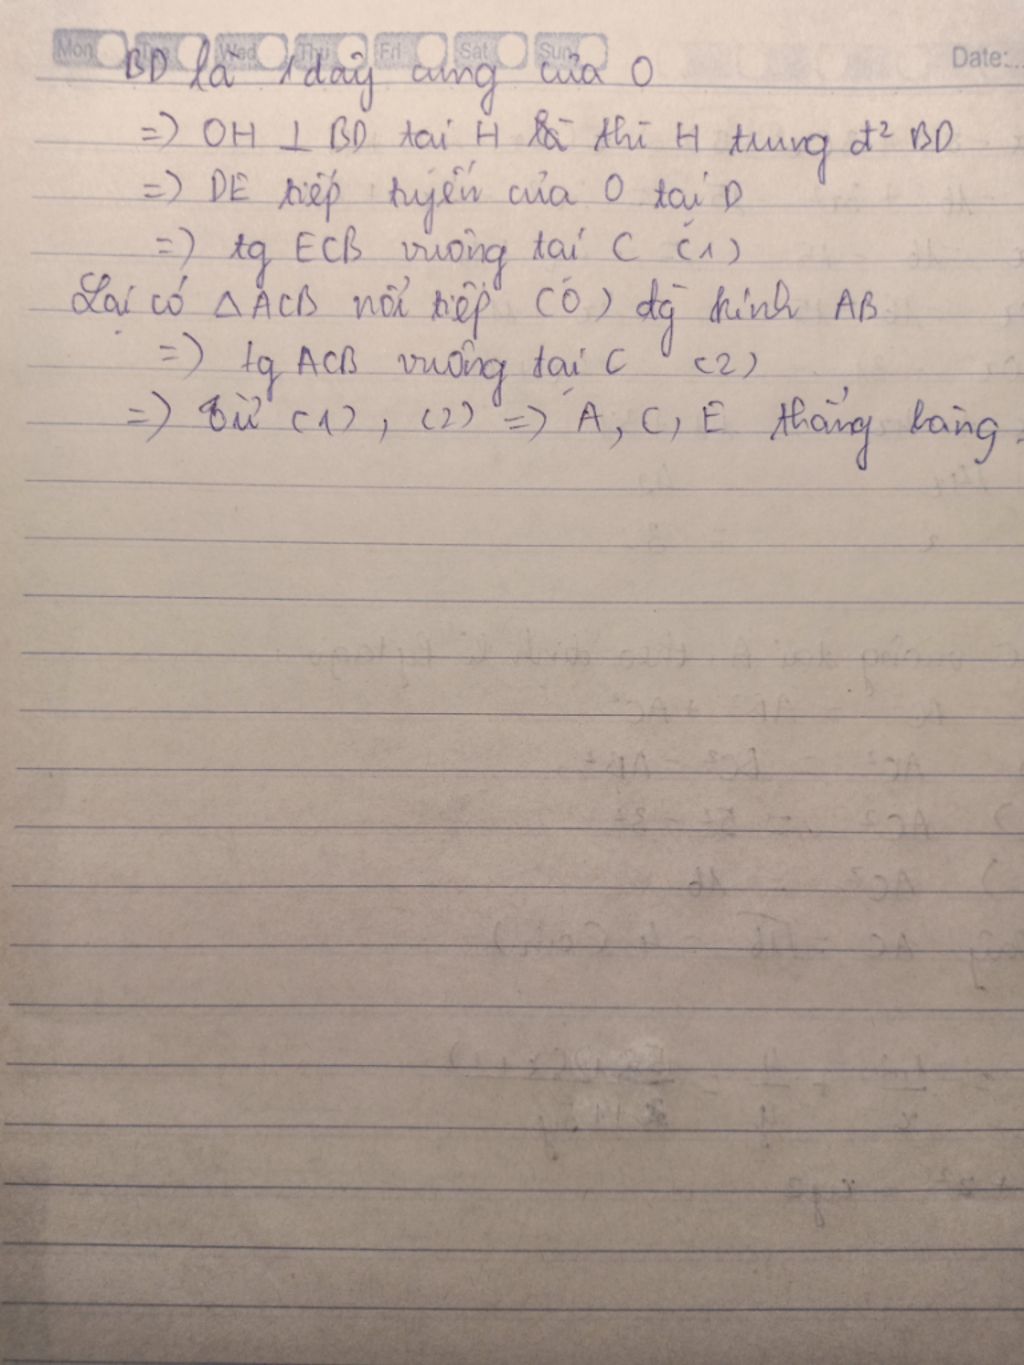 Mon Tue Wed Thu Fri Sat Sun Date:...
BD là 1 dây cung của O
=> OH ⊥ BD tại H thì H trung đ² BD
=> DE tiếp tuyến của O tại D
=> tg ECB vuông tại C (1)
Lại có △ACB nội tiếp (O) đg kính AB
=> tg ACB vuông tại C (2)
=> Từ (1), (2) => A, C, E thẳng hàng.